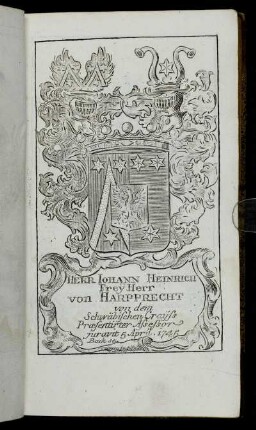 HERR IOHANN HEINRICH
Frey Herr
von HARPPRECHT
von dem
Schwäbischen Crayss
Præsentirter Assessor
juravit 5 April. 1745.